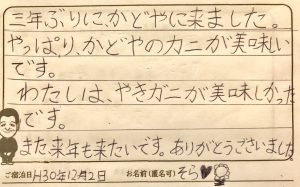 三年ぶりに、かどやに来ました。
やっぱり、かどやのカニが美味い
です。
わたしは、やきガニが美味しかった
です。
また来年も来たいです。ありがとうございました
ご宿泊日 H30年12月2日 お名前(匿名可) そら